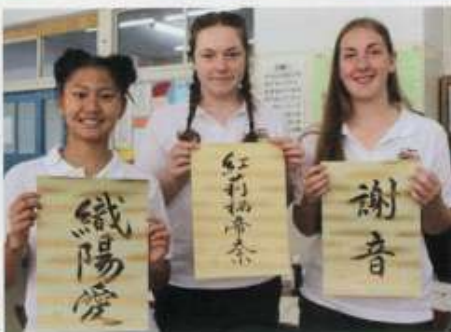 織陽愛
紅莉栖帝奈
謝音